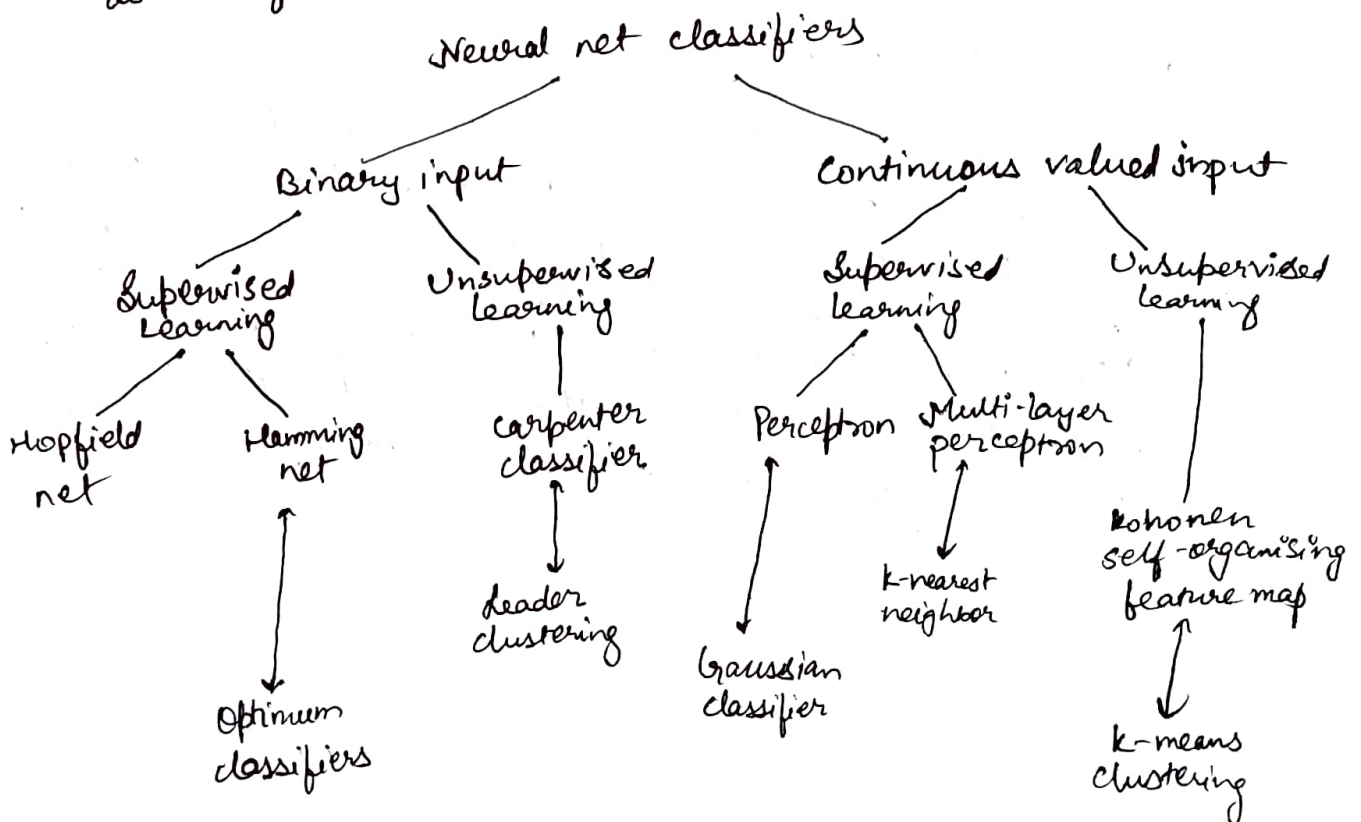 Neural net classifiers
Binary input
Continuous valued input
Supervised
Learning
Unsupervised
learning
Supervised
learning
Unsupervised
learning
Hopfield
net
Hamming
net
Carpenter
classifier
Perceptron
Multi-layer
perceptron
Kohonen
self-organising
feature map
Leader
clustering
k-nearest
neighbor
Gaussian
classifier
Optimum
classifiers
k-means
clustering